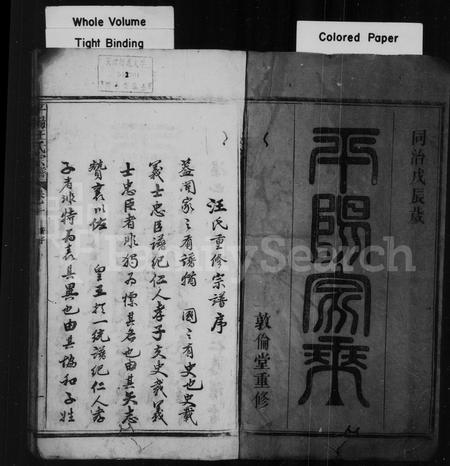 Whole Volume
Tight Binding
Colored Paper
同治戊辰歲
平陽家乘
敦倫堂重修
汪氏重修宗譜序
蓋聞家之有譜猶 國之有史也史載
義士忠臣譜紀仁人孝子夫史載義
士忠臣者非獨為標其名也由其矢志
贊襄以佐 皇王於一統譜紀仁人孝
子者非特為表其異也由其協和子姓
FamilySearch